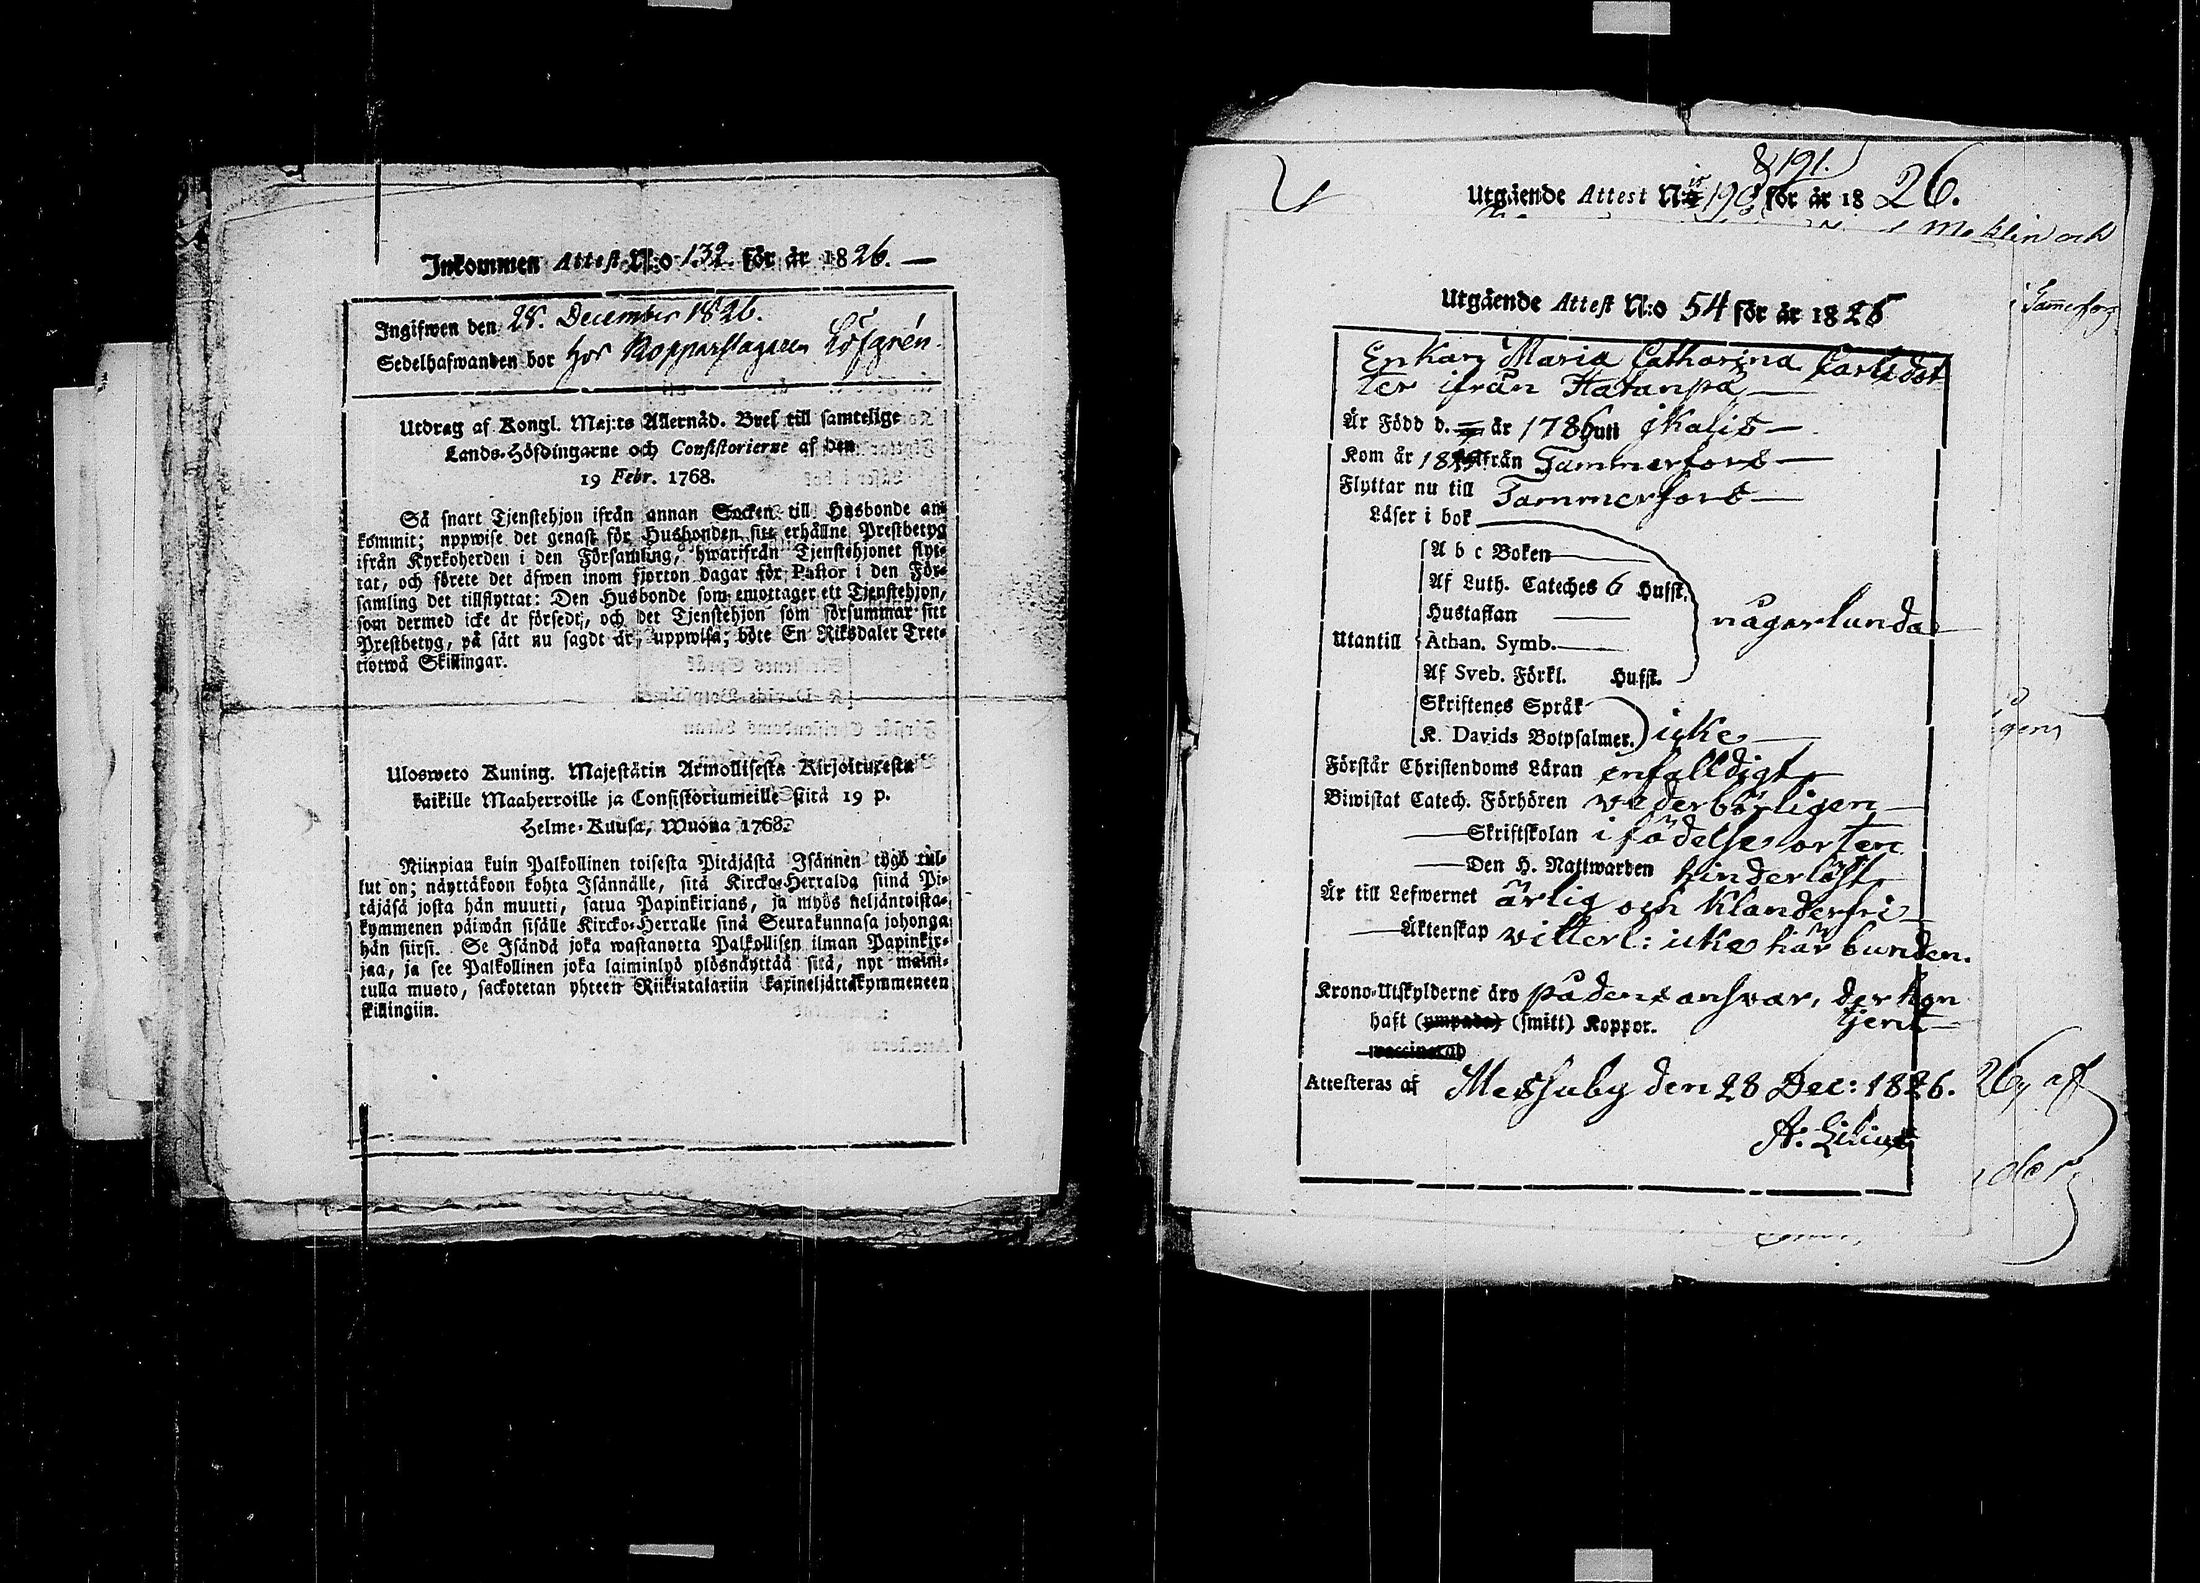 Inkommen Attest N:o 132. för år 1826. —
Ingifwen den 28. December 1826.
Sedelhafwanden bor hos Kopparslagaren Löfgrén.
Utdrag af Kongl. Maj:ts Allernåd. Bref till samtelige
Lands-Höfdingarne och Consistorierne af den
19 Febr. 1768.
Så snart Tjenstehjon ifrån annan Socken till Husbonde an-
kommit; uppwise det genast för Husbonden sitt erhållne Prestbetyg
ifrån Kyrkoherden i den Församling, hwarifrån Tjenstehjonet flyt-
tat, och förete det äfwen inom fjorton dagar för Pastor i den För-
samling det tillflyttat: Den Husbonde som emottager ett Tjenstehjon,
som dermed icke är försedt, och det Tjenstehjon som försummar sitt
Prestbetyg, på sätt nu sagdt är, uppwisa, böte En Riksdaler Tret-
tiotwå Skillingar.
Ulosweto Kuning. Majestätin Armollisesta Kirjoituxesta
kaikille Maaherroille ja Consistoriumeille siitä 19 p.
Helme-Kuusa, Wuona 1768.
Niinpian kuin Palkollinen toisesta Pitäjästä Isännen tygö tul-
lut on; näyttäkoon kohta Isännälle, sitä Kircko-Herralda siinä Pi-
täjäsä josta hän muutti, saatua Papinkirjans, ja myös neljäntoista-
kymmenen päiwän sisälle Kircko-Herralle siinä Seurakunnasa johonga
hän siirsi. Se Isändä joka wastanotta Palkollisen ilman Papinkir-
jaa, ja see Palkollinen joka laiminlyö ylösnäyttää sitä, nyt maini-
tulla muoto, sackotetan yhteen Riikintalariin kaxineljättäkymmeneen
skillingiin.
& 191.
Utgående Attest N:is 190 för år 1826.
Meklin och
i Tammerfors
Utgående Attest N:o 54 för år 1826
Enkan Maria Catharina Carlsdot
ter ifrån Hatanpä —
Är Född d. — år 1786 uti Ikalis —
Kom år ifrån Tammerfors —
Flyttar nu till Tammerfors —
Läser i bok
A b c Boken
Af Luth. Cateches 6 Hufst.
Hustaflan
någorlunda
Utantill Athan. Symb.
Af Sveb. Förkl. Hufst.
Skriftenes Språk
K. Davids Botpsalmer. icke —
Förstår Christendoms Läran enfalldigt
Biwistat Catech. Förhören vederbörligen —
— Skriftskolan i födelse orten
— Den H. Nattwarden hinderlöst
Är till Lefwernet ärlig och klanderfri —
— Äktenskap vitterl: icke här bunden.
Krono-Utskylderne äro på dens answar, der hon
haft (ympade) (smitt) Koppor. tjent —
vaccinerad
Attesteras af Messuby den 28 Dec: 1826.
A: Lilius
26, af